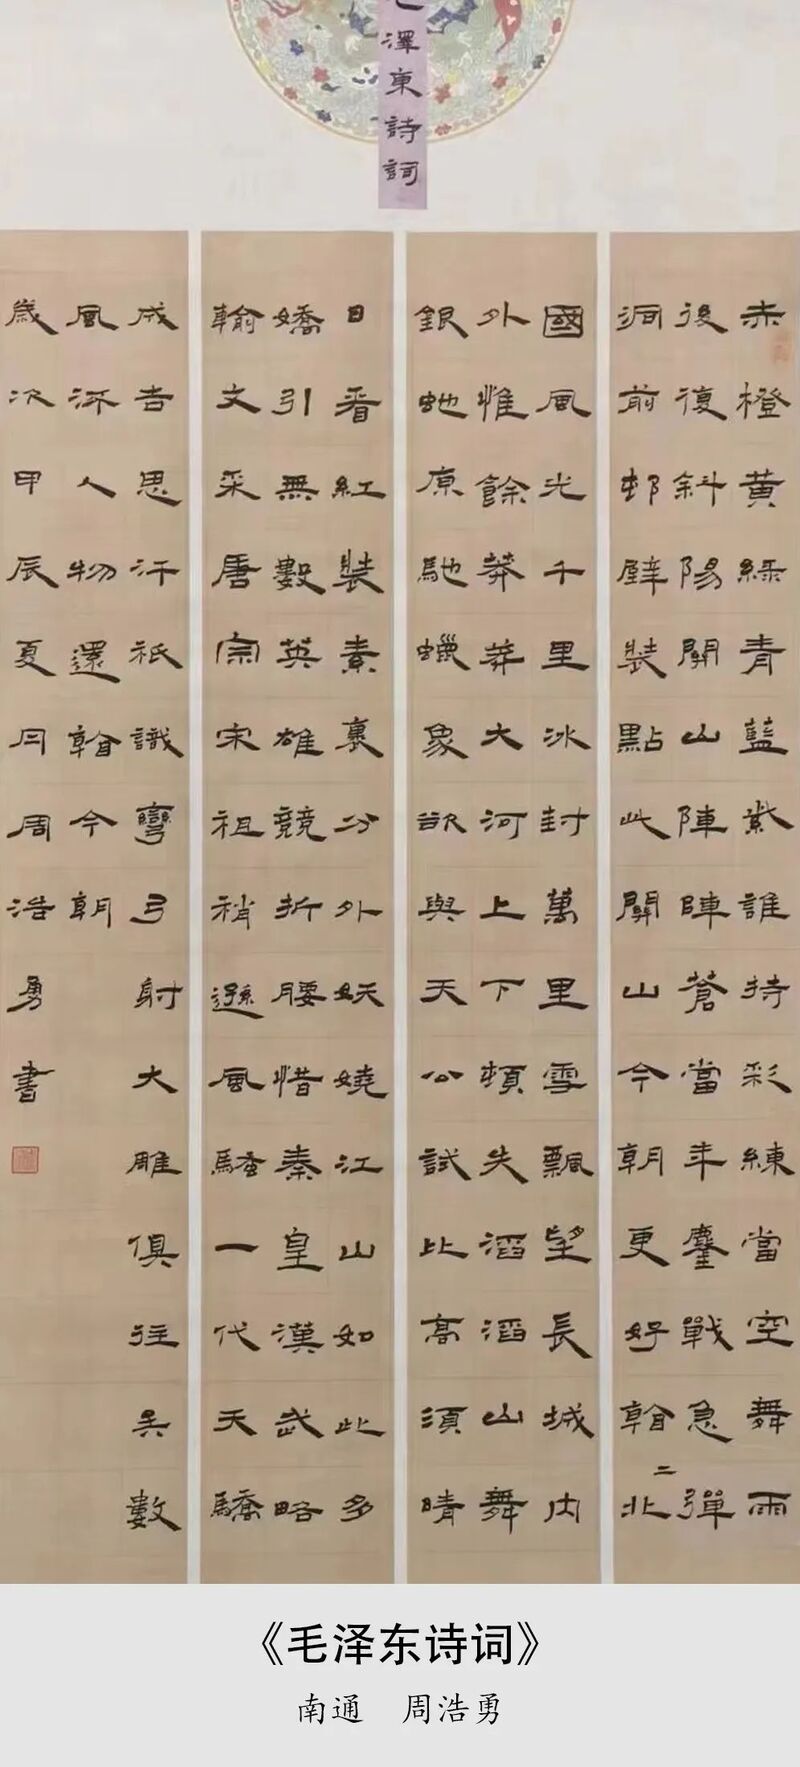 毛澤東詩詞
赤橙黃綠青藍紫誰持彩練當空舞雨
後復斜陽關山陣陣蒼當年鏖戰急彈
洞前邨壁裝點此關山今朝更好看二北
國風光千里冰封萬里雪飄望長城內
外惟餘莽莽大河上下頓失滔滔山舞
銀虵原馳蠟象欲與天公試比高須晴
日看紅裝素裹分外妖嬈江山如此多
嬌引無數英雄競折腰惜秦皇漢武略
輸文采唐宗宋祖稍遜風騷一代天驕
成吉思汗祇識彎弓射大雕俱往矣數
風流人物還看今朝
歲次甲辰夏月周浩勇書
《毛泽东诗词》
南通 周浩勇